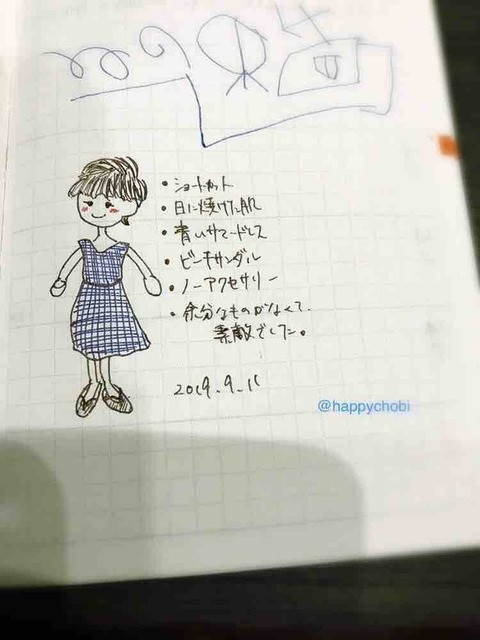 ・ショートカット
・日に焼けた肌
・青いサマードレス
・ビーチサンダル
・ノーアクセサリー
・余分なものがなくて、
素敵でした。
2019.9.11
@happychobi